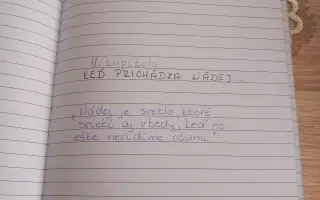 11. Kapitola
KEĎ PRICHÁDZA NÁDEJ...
„Nádej je svetlo, ktoré
svieti aj vtedy, keď ho
ešte nevidíme očami."